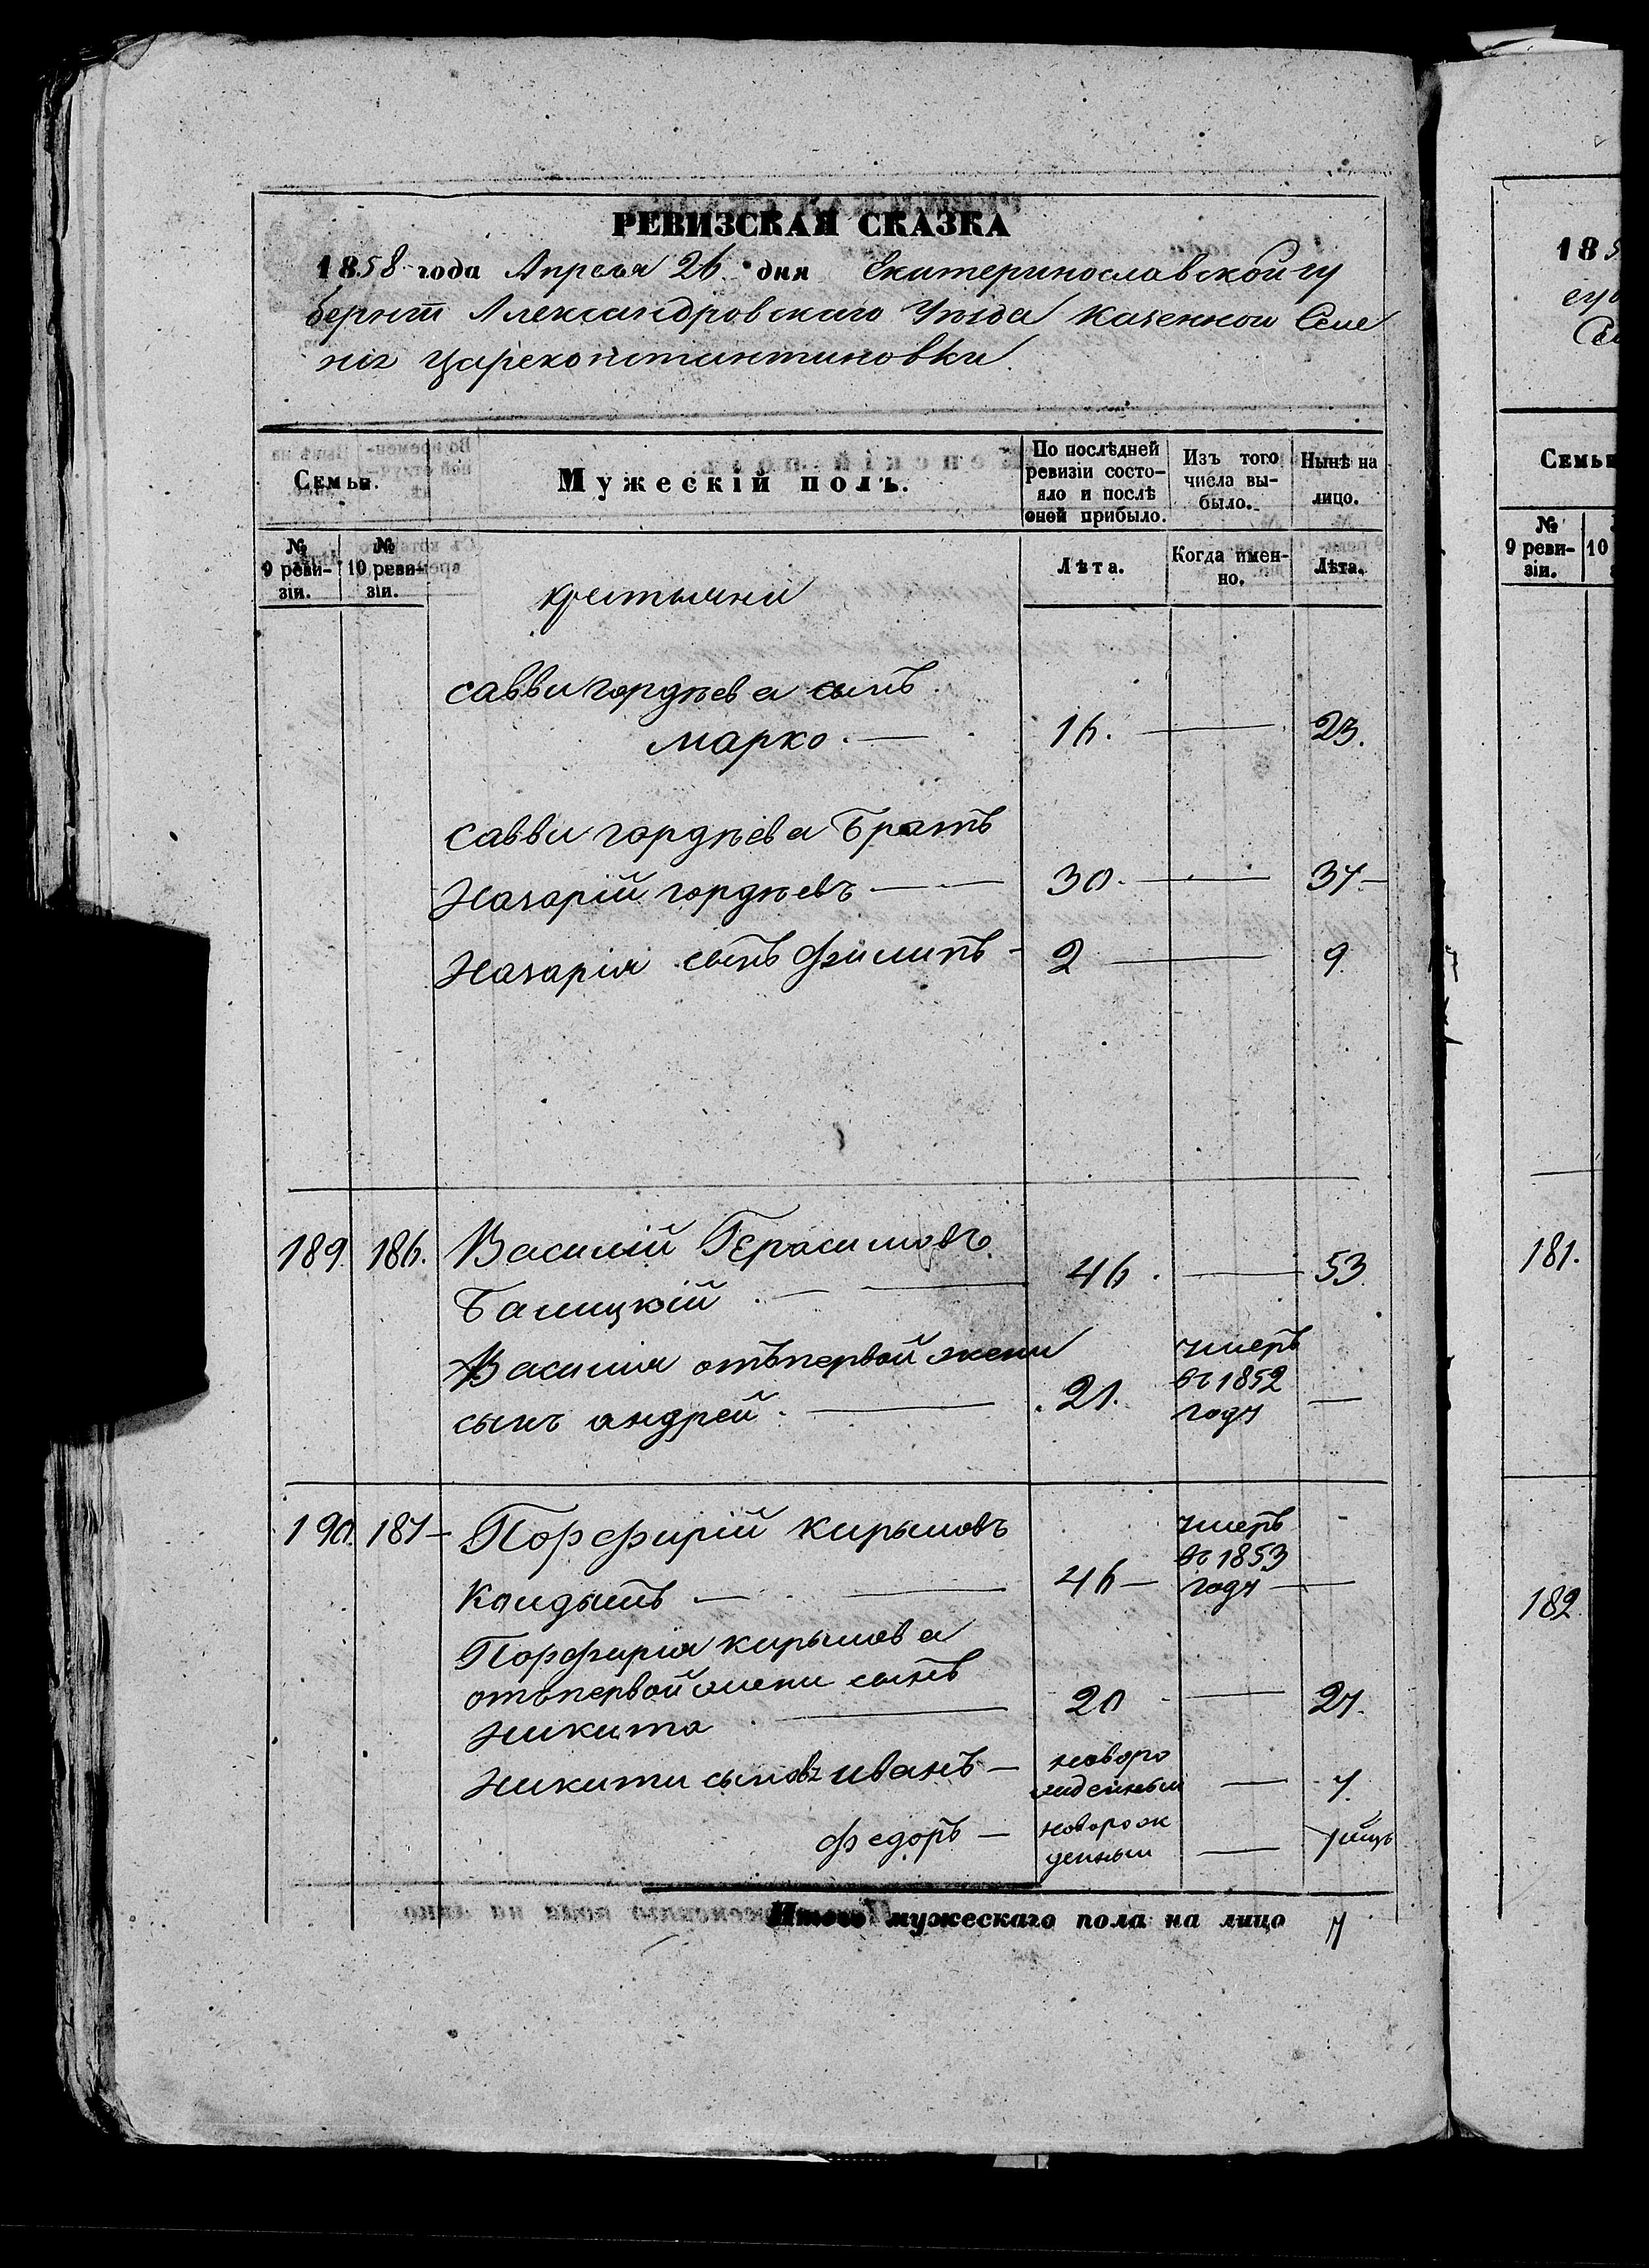 РЕВИЗСКАЯ СКАЗКА
1858 года Апреля 26 дня Екатеринославской гу
берніи Александровскаго Уѣзда казенной Селе
ніе Цареконстантиновки
Семьи.
Мужескій полъ.
По послѣдней ревизіи состо-
яло и послѣ
оной прибыло.
Изъ того
числа вы-
было.
Нынѣ на
лицо.
№
9 реви-
зіи.
№
10 реви-
зіи.
Лѣта.
Когда имен-
но.
Лѣта.
крестьяни
савви гордѣева сынъ
марко. — 16. — 23.
савви гордѣева братъ
Назарій гордѣевъ — 30. — 37 —
Назарія сынъ филипъ — 2 — 9
189. 186. Василій Герасимовъ
Балицкій — 46. — 53.
Василія отъ первой жени
сынъ андрей. — 21. умеръ
въ 1852
году —
190. 187 — Порфирій кирыловъ
— 46 — умеръ
въ 1853
году —
Порфирія кирылова
отъ первой жени сынъ
никита — 20 — 27.
Никити сыновъ иванъ — новоро
жденный — 7.
федоръ — новорож
денный —
Итого мужескаго пола на лицо 7
185
СЕМЬИ
№
9 реви-
зіи.
10
181.
182